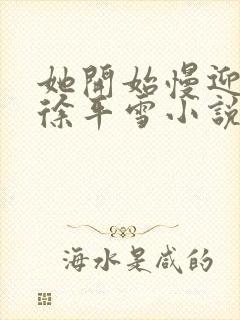 她開始慢迎
徐平雪小說
海水是咸的